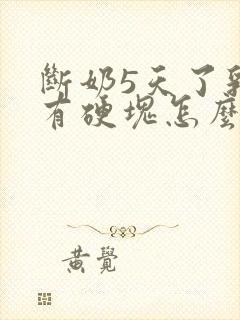 斷奶5天了
有硬塊怎麼
黃覺